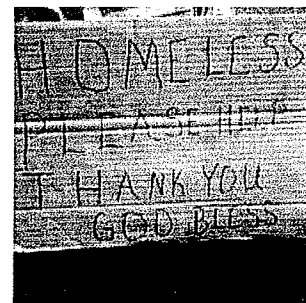 HOMELESS
PLEASE HELP
THANK YOU
GOD BLESS